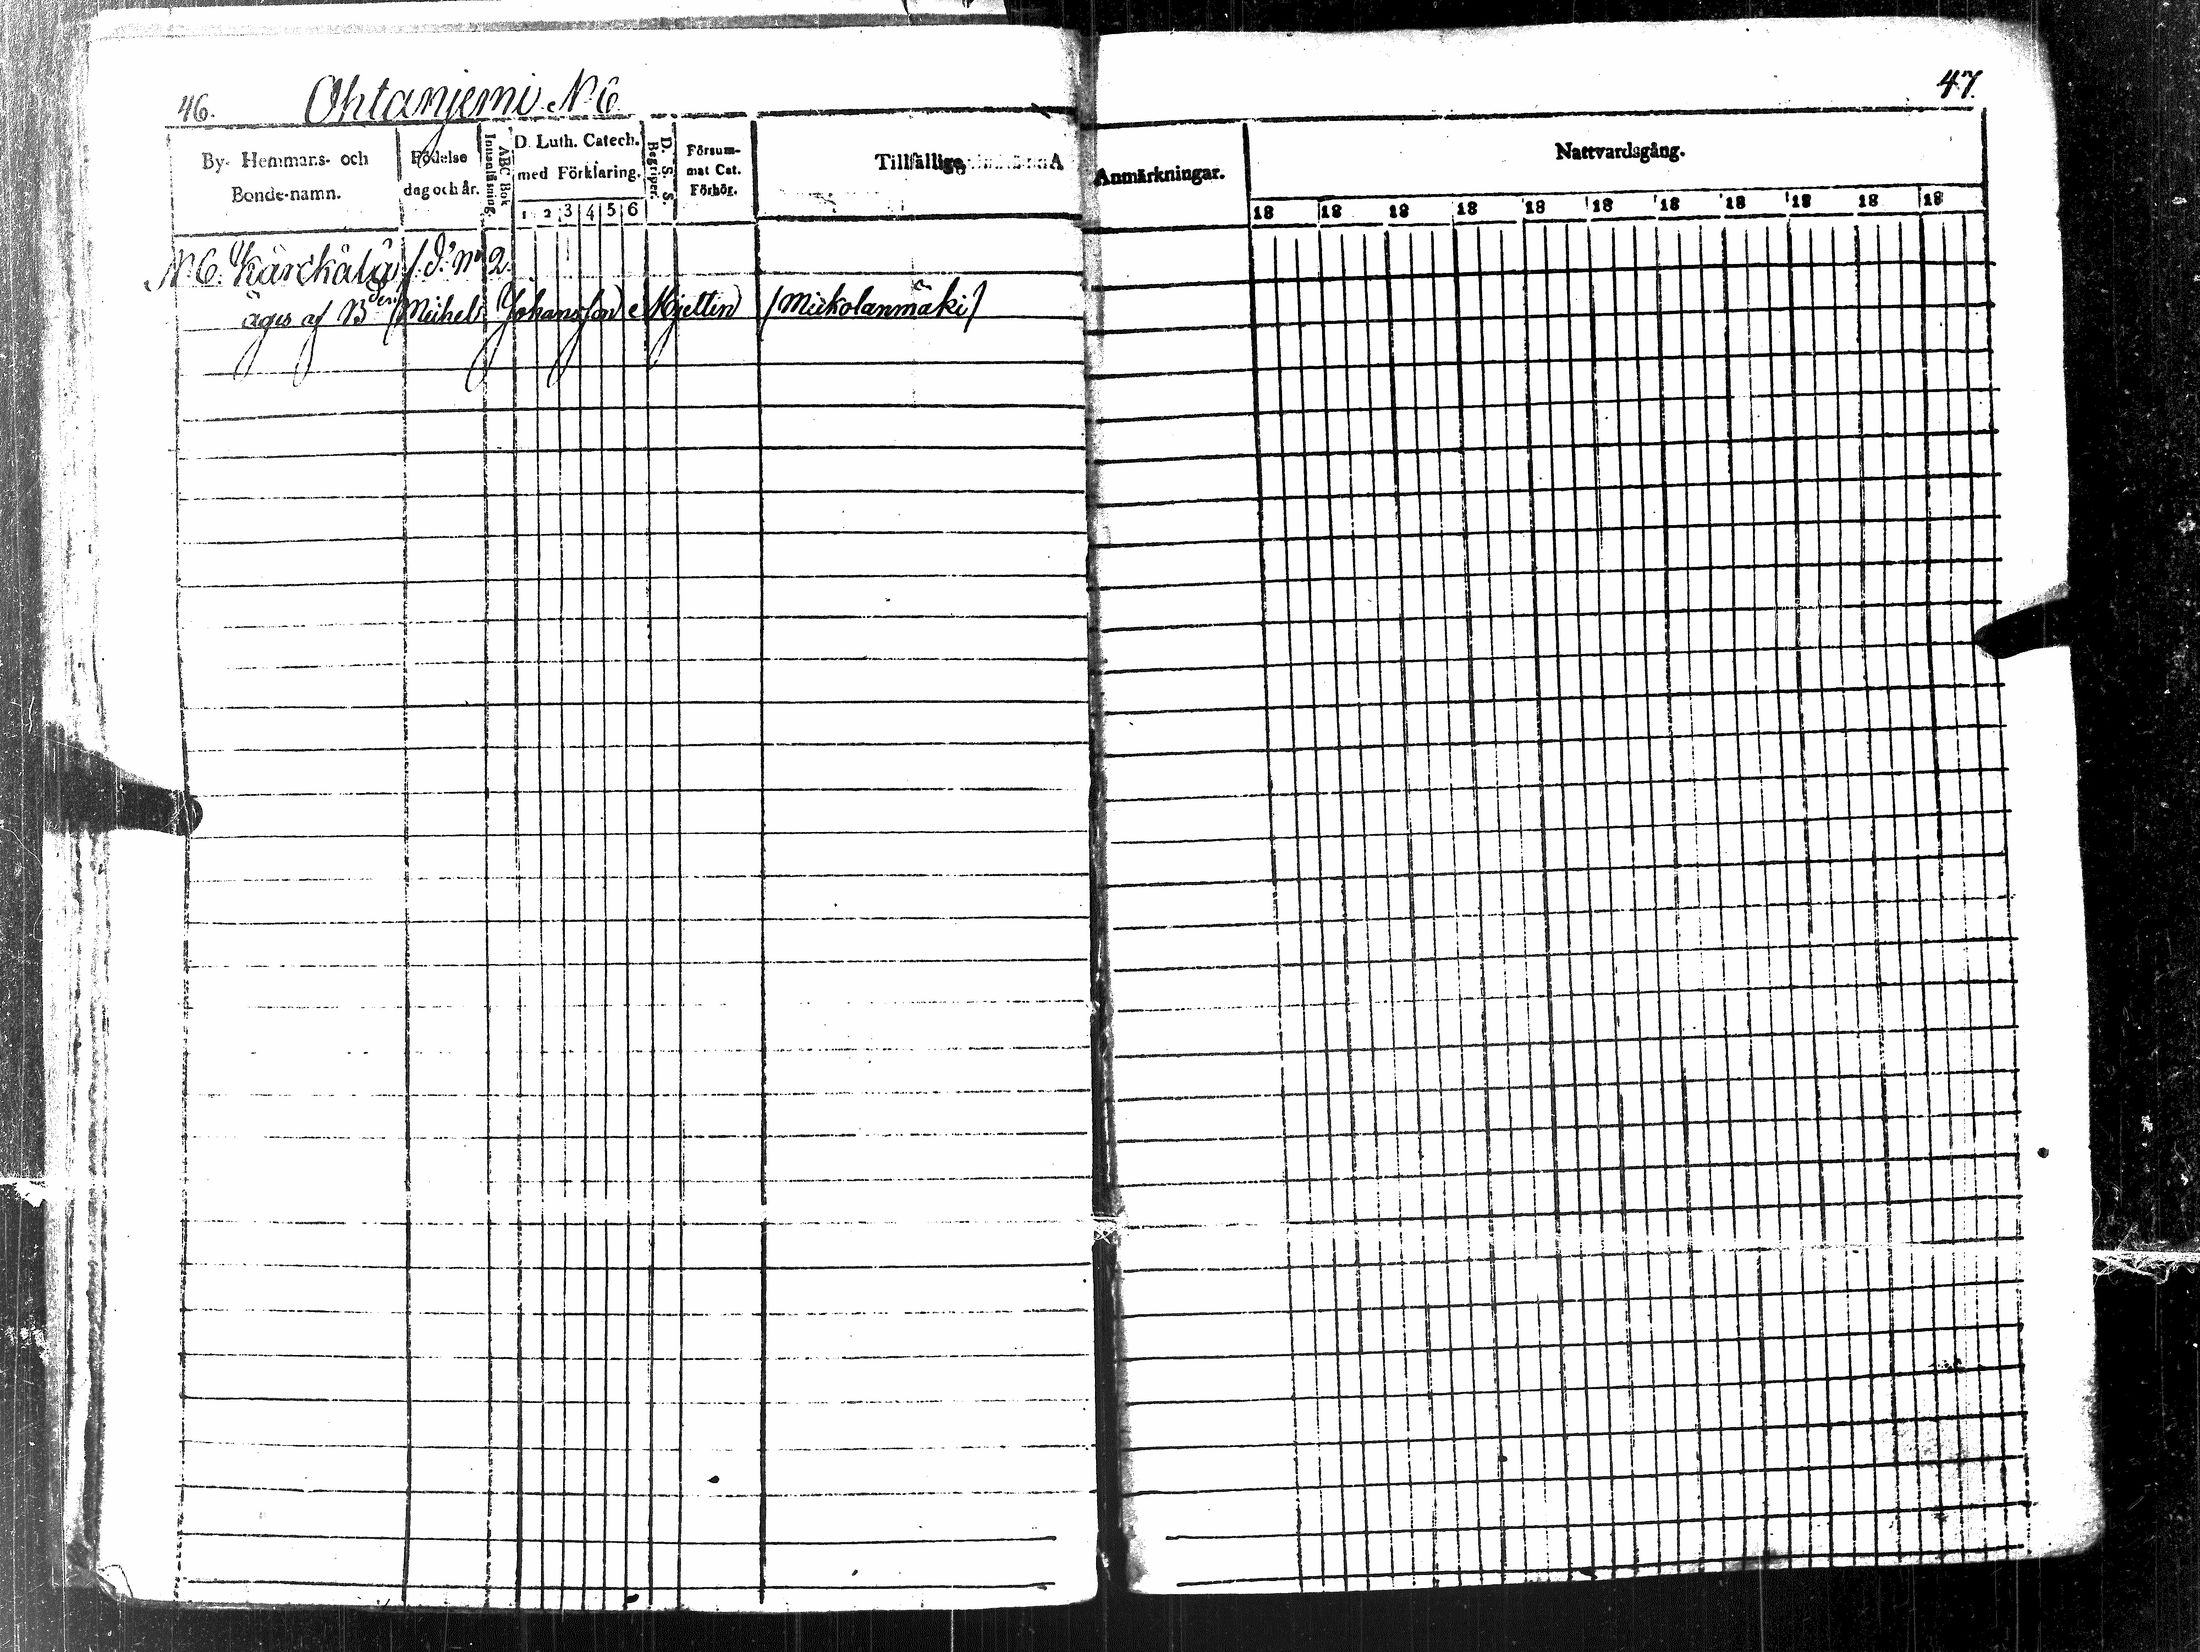 46. Ohtanjemi N:6
By- Hemmans- och
Bonde-namn.
Födelse
dag och år.
ABC Bok
Innanläsning.
D. Luth. Catech.
med Förklaring.
1 2 3 4 5 6
D. S. S.
Begriper.
Försum-
mat Cat.
Förhör.
Tillfällige
N:6. Kärckälä
äges af B:den Michel Johansson Kjellin /Mickolanmäki/
47
Anmärkningar.
Nattvardsgång.
18 18 18 18 18 18 18 18 18 18 18